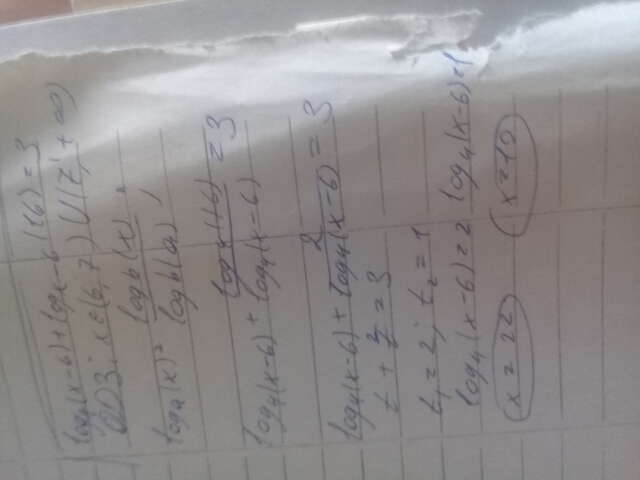 log₄(x-6) + logₓ₋₆(16) = 3
ОДЗ: x∈(6,7)∪(7; +∞)
logₐ(x) = log_b(x) / log_b(a) ;
log₄(x-6) + log₄(16) / log₄(x-6) = 3
log₄(x-6) + 2 / log₄(x-6) = 3
t + 2/t = 3
t₁ = 2; t₂ = 1
log₄(x-6) = 2 log₄(x-6) = 1
x = 22 x = 10